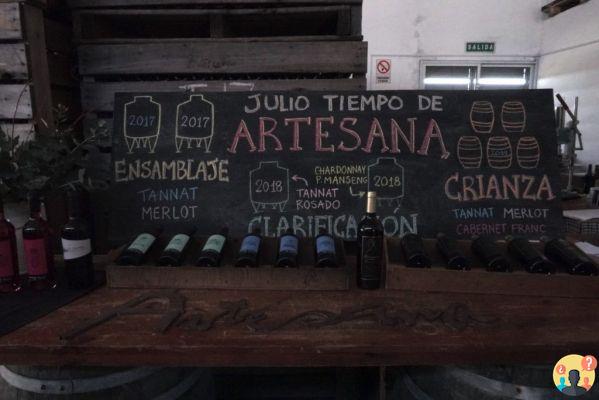 SALIDA
JULIO TIEMPO DE
ARTESANA
2017 2017
ENSAMBLAJE
TANNAT
MERLOT
CHARDONNAY
P. MANSENG
2018
TANNAT
ROSADO
2018
CLARIFICACIÓN
CRIANZA
TANNAT MERLOT
CABERNET FRANC
Artesana